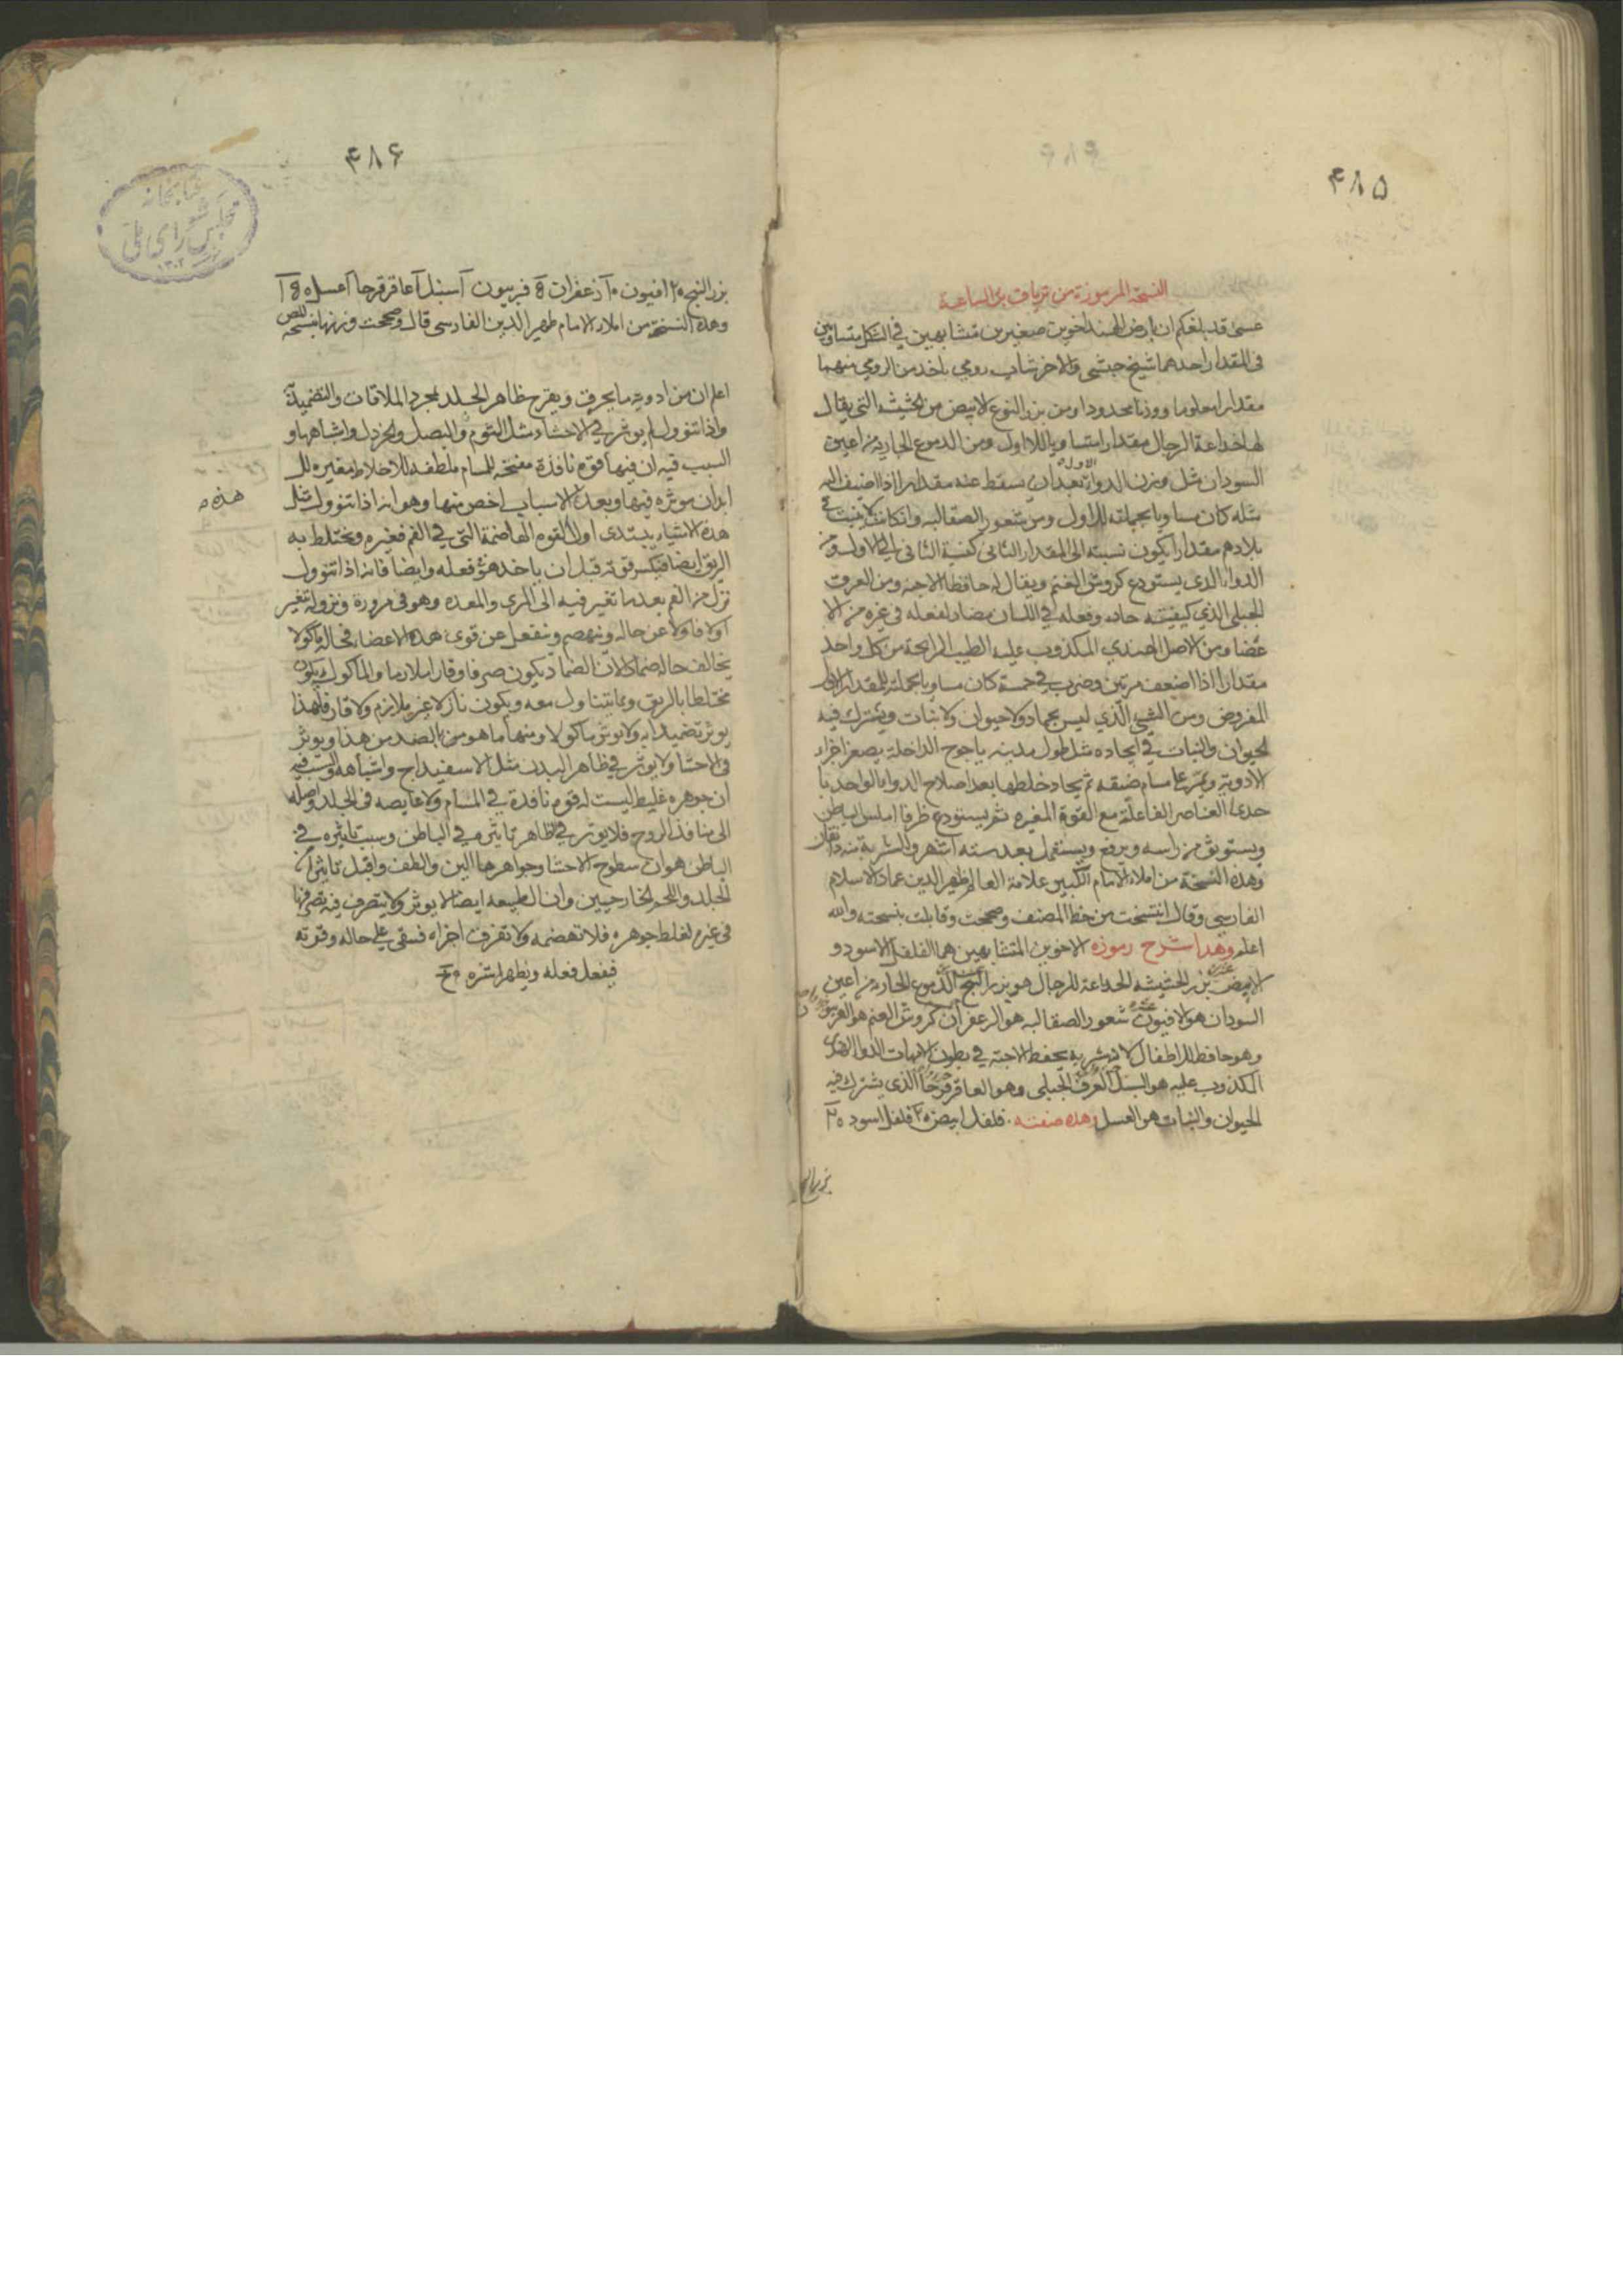 ۴۸۵
النسخة المرموزة من ترياق برء الساعة
عسى قد بلغكم ان بارض الهند اخوين صغيرين متشابهين في الشكل متساويين
في المقدار احدهما شيخ حبشي والاخر شاب رومي ياخذ من الرومي منهما
مقدارا معلوما ووزنا محدودا ومن بزر النوع الابيض من الحشيشه التي يقال
لها خداعة الرجال مقدارا متساويا للاول ومن الدموع الجاريه من اعين
السودان مثل وزن الدواء الاول بعد ان يسقط عنه مقدار اذا اضيف اليه
مثله كان مساويا بجملته للاول ومن شعور الصقالبه وان كانت لا ينبت في
بلادهم مقدارا يكون نسبته الى المقدار الثاني كنسبة الثاني الى الاول ومن
الدواء الذي يستودع كروش الغنم ويقال له حافظ الاجنه ومن العرق
الجبلي الذي كيفيته حاده وفعله في اللسان مضاد لفعله في غيره من الا
عضا ومن الاصل الهندي المكذوب عليه الطيب الرايحة من كل واحد
مقدارا اذا اضعف مرتين وضرب في خمسة كان مساويا بجملته للمقدار الاول
المفروض ومن الشي الذي ليس بجماد ولا حيوان ولا نبات ويشترك فيه
الحيوان والنبات في ايجاده مثل طول مدينه ياجوج الداخلة يصغر اجزاء
الادوية ويمر على مسام ضيقه ثم يجاد خلطها بعد اصلاح الدوا بالواحد با
حدى العناصر الفاعلة مع القوة المغيره ثم يستودع ظرفا املس الباطن
ويستوثق من راسه ويرفع ويستعمل بعد سته اشهر والشربة منه دانقان
وهذه النسخة من املاء الامام الكبير علامة العالم ظهير الدين عماد الاسلام
الفارسي وقال انتسخت من خط المصنف وصححت وقابلت بنسخته والله
اعلم وهذا شرح رموزه الاخوين المتشابهين هما الفلفل الاسود و
الابيض بزر الحشيشه الخداعة للرجال هو بزر البنج الدموع الجاريه من اعين
السودان هو الافيون شعور الصقالبه هو الزعفران كروش الغنم هو الفربيون
وهو حافظ للاطفال لان شربه يحفظ الاجنه في بطون الامهات الدوا الهندى
المكذوب عليه هو السنبل العرق الجبلي وهو العاقرقرحا الذي يشترك فيه
الحيوان والنبات هو العسل وهذه صفته فلفل ابيض ٢٠ فلفل اسود ٢٠
بزر البنج
۴۸۶
كتابخانه
مجلس شوراى ملى
١٣٠٢
بزر البنج ٢٠ افيون ١٠ زعفران 8 فربيون آ سنبل آ عاقرقرحا آ عسل
وهذه النسخة من املاء الامام ظهير الدين الفارسي قال وصححت وزنها بنسخة
اعلم ان من ادوية ما يحرق ويقرح ظاهر الجلد بمجرد الملاقات والتضميد
واذا تنوول لم يوثر في الاحشاء مثل الثوم والبصل والخردل واشباهها و
السبب فيه ان فيها قوة نافذة مفتحه للمسام ملطفه للاخلاط مغيره للـ
ابدان موثره فيها وبعد الاسباب اخص منها وهو انه اذا تنوول مثل
هذه
هذه الاشياء يبتدى اولا القوه الهاضمة التي في الفم فغيره ويختلط به
الريق ايضا فيكسر قوته قبل ان ياخذ هو فعله وايضا فانه اذا تنوول
نزل من الفم بعد ما تغير فيه الى المري والمعده وهو في مروره ونزوله تغير
اولا فاولا عن حاله وينهضم وينفعل عن قوى هذه الاعضا فحاله ماكولا
يخالف حاله ضمادا لان الضماد يكون صرفا وقارا ملازما والماكول يكون
مختلطا بالريق وبما يتناول معه ويكون نازلا غير ملازم ولا قار فلهذا
يوثر تضميدا به ولا يوثر ماكولا ومنها ما هو من بالضد من هذا ويوثر
في الاحشا ولا يوثر في ظاهر البدن مثل الاسفيداج واشباهه والسبب فيه
ان جوهره غليظ ليست له قوة نافذة في المسام ولا غايصه في الجلد واصله
الى منافذ الروح فلا يوثر في ظاهر تاثيره في الباطن وسبب تاثيره في
الباطن هو ان سطوح الاحشا وجواهرها الين والطف واقبل تاثيرا من
الجلد واللحم الخارجيين وان الطبيعه ايضا لا يوثر ولا يتصرف فيه تصرفها
في غيره لغلظ جوهره فلا تهضمه ولا تفرق اجزاه فتبقى على حاله وقوته
فيفعل فعله ويظهر اثره